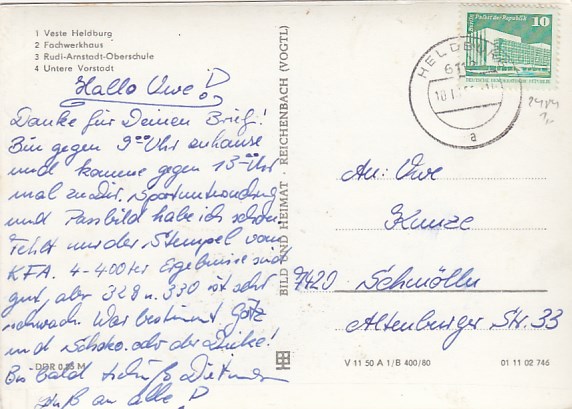 1 Veste Heldburg
2 Fachwerkhaus
3 Rudi-Arnstadt-Oberschule
4 Untere Vorstadt
Hallo Uwe!
Danke für Deinen Brief!
Bin gegen 9ºº Uhr zuhause
und komme gegen 13ºº Uhr
mal zu Dir. Sportunordnung
und Passbild habe ich schon.
Fehlt nur der Stempel vom
KFA. 4-400ter Ergebnisse sind
gut, aber 328 u. 330 ist sehr
schwach. War bestimmt Götz
und Schoko. oder der Dicke!
Bis bald tschüß Dietmar
Gruß an alle
DDR 0,25 M
BILD UND HEIMAT · REICHENBACH (VOGTL)
Berlin Palast der Republik
10
DEUTSCHE DEMOKRATISCHE REPUBLIK
HELDBURG
a
An: Uwe
Kunze
7420 Schmölln
Altenburger Str. 33
V 11 50 A 1/B 400/80
01 11 02 746